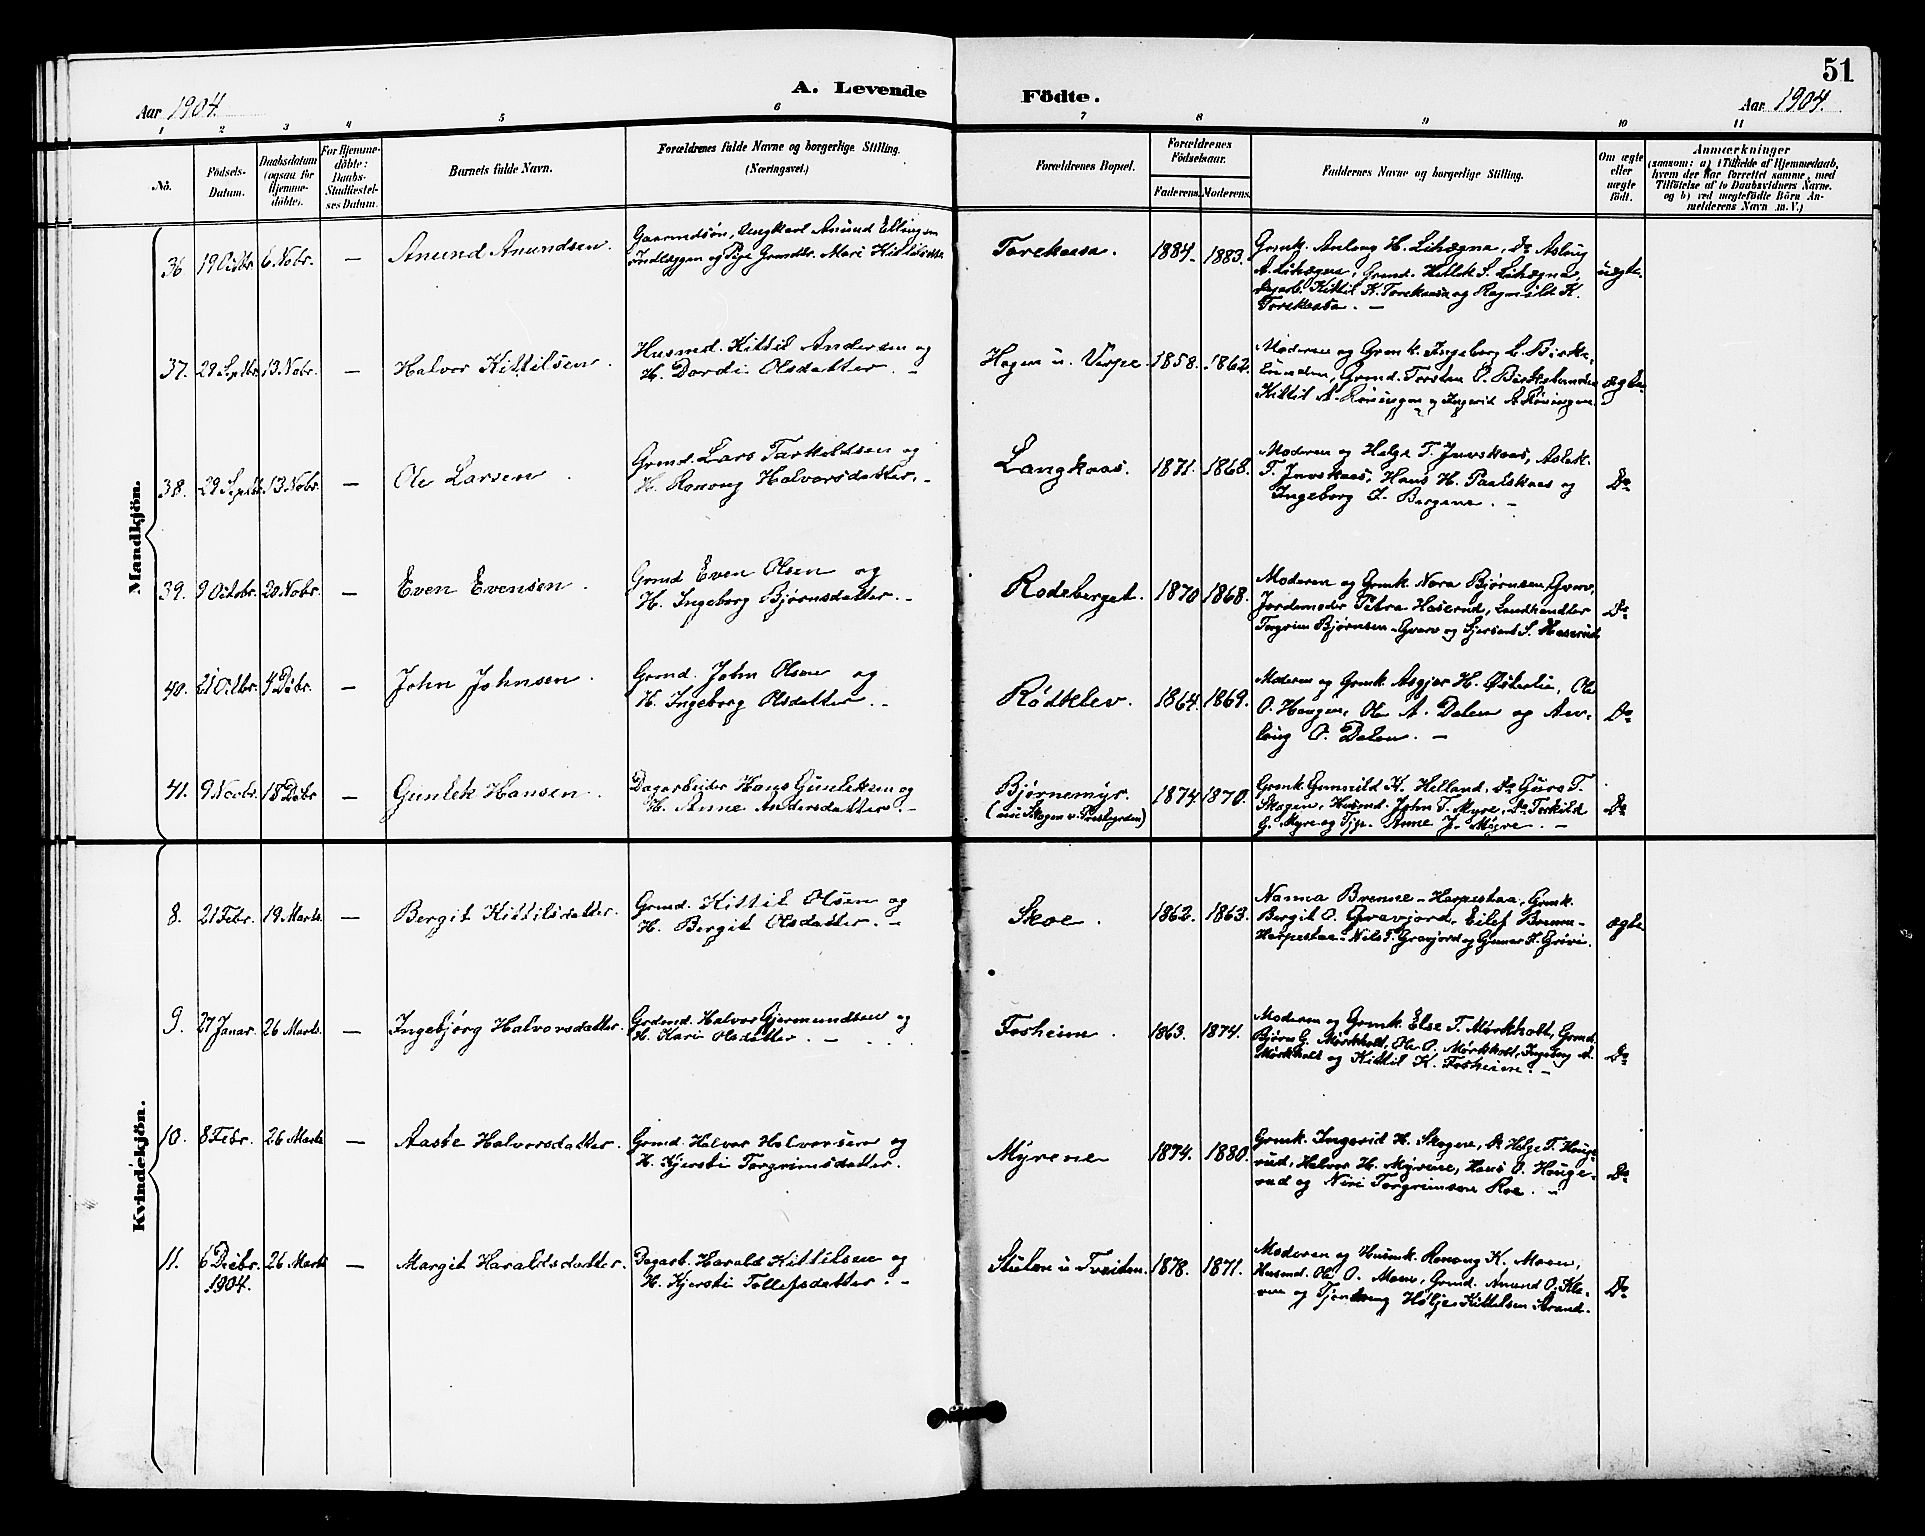 51
A. Levende Födte.
Aar 1904. Aar 1904.
1 2 3 4 5 6 7 8 9 10 11
No.
Födsels-Datum.
Daabsdatum (ogsaa for Hjemme-döbte).
For Hjemme-döbte: Daabs-Stadfæstel-ses Datum.
Barnets fulde Navn.
Forældrenes fulde Navne og borgerlige Stilling. (Næringsvei.)
Forældrenes Bopæl.
Forældrenes Födselsaar.
Faderens. Moderens.
Faddernes Navne og borgerlige Stilling.
Om ægte eller uægte født.
Anmærkninger
(saasom: a) i Tilfælde af Hjemmedaab,
hvem der har forrettet samme, med
Tilföielse af to Daabsvidners Navne,
og b) ved uægtefödte Börn An-
melderens Navn m. V.)
Mandkjön.
36. 19 Octbr. 6 Nobr. — Anund Anundsen.
Gaardmdsön, Ungkarl Anund Ellingsen
og Pige Grmdtr. Mari Kittilsdtr.
Torekaasa. 1884. 1883.
Grmk. Anlaug H. Lihægna, Do Aslaug
A. Lihægna, Grmd. Hellek S. Lihægna,
Dagarb. Kittil K. Torekaasa og Ragnild K.
Torekaasa. —
uægte.
37. 28 Septbr. 13 Nobr. — Halvor Kittilsen.
Husmd. Kittil Andersen og
H. Dordi Olsdatter. —
Hagen u. Verpe. 1858. 1862.
Moderen og Grmk. Ingeborg L. Birke-
lunden, Grmd. Torsten O. Birkelunden
Kittil A. Röningen og Ingerid A. Röningen.
ægte
38. 29 Septbr. 13 Nobr. — Ole Larsen.
Grmd. Lars Tarkeldsen og
H. Ronoug Halvorsdatter. —
Langkaas. 1871. 1868.
Moderen og Helge T. Juvskaas, Aslek
T. Juvskaas, Hans H. Paalskaas og
Ingeborg L. Bergene. —
Do
39. 9 Octobr. 20 Nobr. — Even Evensen.
Grmd Even Olsen og
H. Ingeborg Bjørnsdatter. —
Rodeberget. 1870 1868.
Moderen og Grmk. Nora Bjørnsen, Gvarv,
Jordemoder Petra Haserud, Landhandler
Torgrim Bjørnsen-Gvarv og Sjersant S. Haserud
Do
40. 21 Octbr. 4 Debr. — John Johnsen.
Grmd. John Olsen og
H. Ingeborg Olsdatter. —
Rödklev. 1864. 1869.
Moderen og Grmk. Asgjer H. Østerlia, Ole
O. Haugen, Ole A. Dalen og As-
laug O. Dalen. —
Do
41. 9 Novbr. 18 Debr — Gunlek Hansen.
Dagarbeider Hans Gunleksen og
H. Anne Andersdatter. —
Bjørnemyr. 1874. 1870.
Grmk. Gunnild K. Helland, Do Guro T.
Skogen, Husmd. John T. Myre, Do Torkild
G. Myre og Tjp. Anne J. Myre. —
Do
Kvindekjön.
8. 21 Febr. 19 Marts — Bergit Kittilsdatter.
Grmd. Kittil Olsen og
H. Bergit Olsdatter. —
Skoe. 1862. 1863.
Nanna Bremne-Harpestaa, Grmk.
Bergit O. Gravjord, Eilef Bremne-
Harpestaa. Nils T. Gravjord og Gunnar T. Grivi.
ægte
9. 27 Januar. 26 Marts. — Ingebjörg Halvorsdatter.
Grdmd. Halvor Gjermundsen og
H. Kari Olsdatter. —
Fosheim. 1863. 1874.
Moderen og Grmk. Else T. Mørkholt, Grmd.
Bjørn G. Mørkholt, Ole O. Mørkholt, Ingeborg A.
Mørkholt og Kittil K. Fosheim. —
Do
10. 8 Febr. 26 Marts — Aaste Halvorsdatter.
Grmd. Halvor Halvorsen og
H. Kjersti Torgrimsdatter.
Myrene 1874. 1880.
Grmk. Ingerid H. Skogen, Do Helge T. Houge-
rud, Halvor H. Myrene, Hans O. Houge-
rud og Niri Torgrimsen Roe.
Do
11. 6 Decbr. 1904. 26 Marts — Margit Haraldsdatter.
Dagarb. Harald Kittilsen og
H. Kjersti Tollefsdatter. —
Stulen u Tveiten. 1878. 1871.
Moderen og Husmk. Ronoug K. Moen,
Husmd. Ole O. Moen, Grmd. Anund O. Kle-
ven og Tjendreng Hølje Kittilsen Strand.
Do